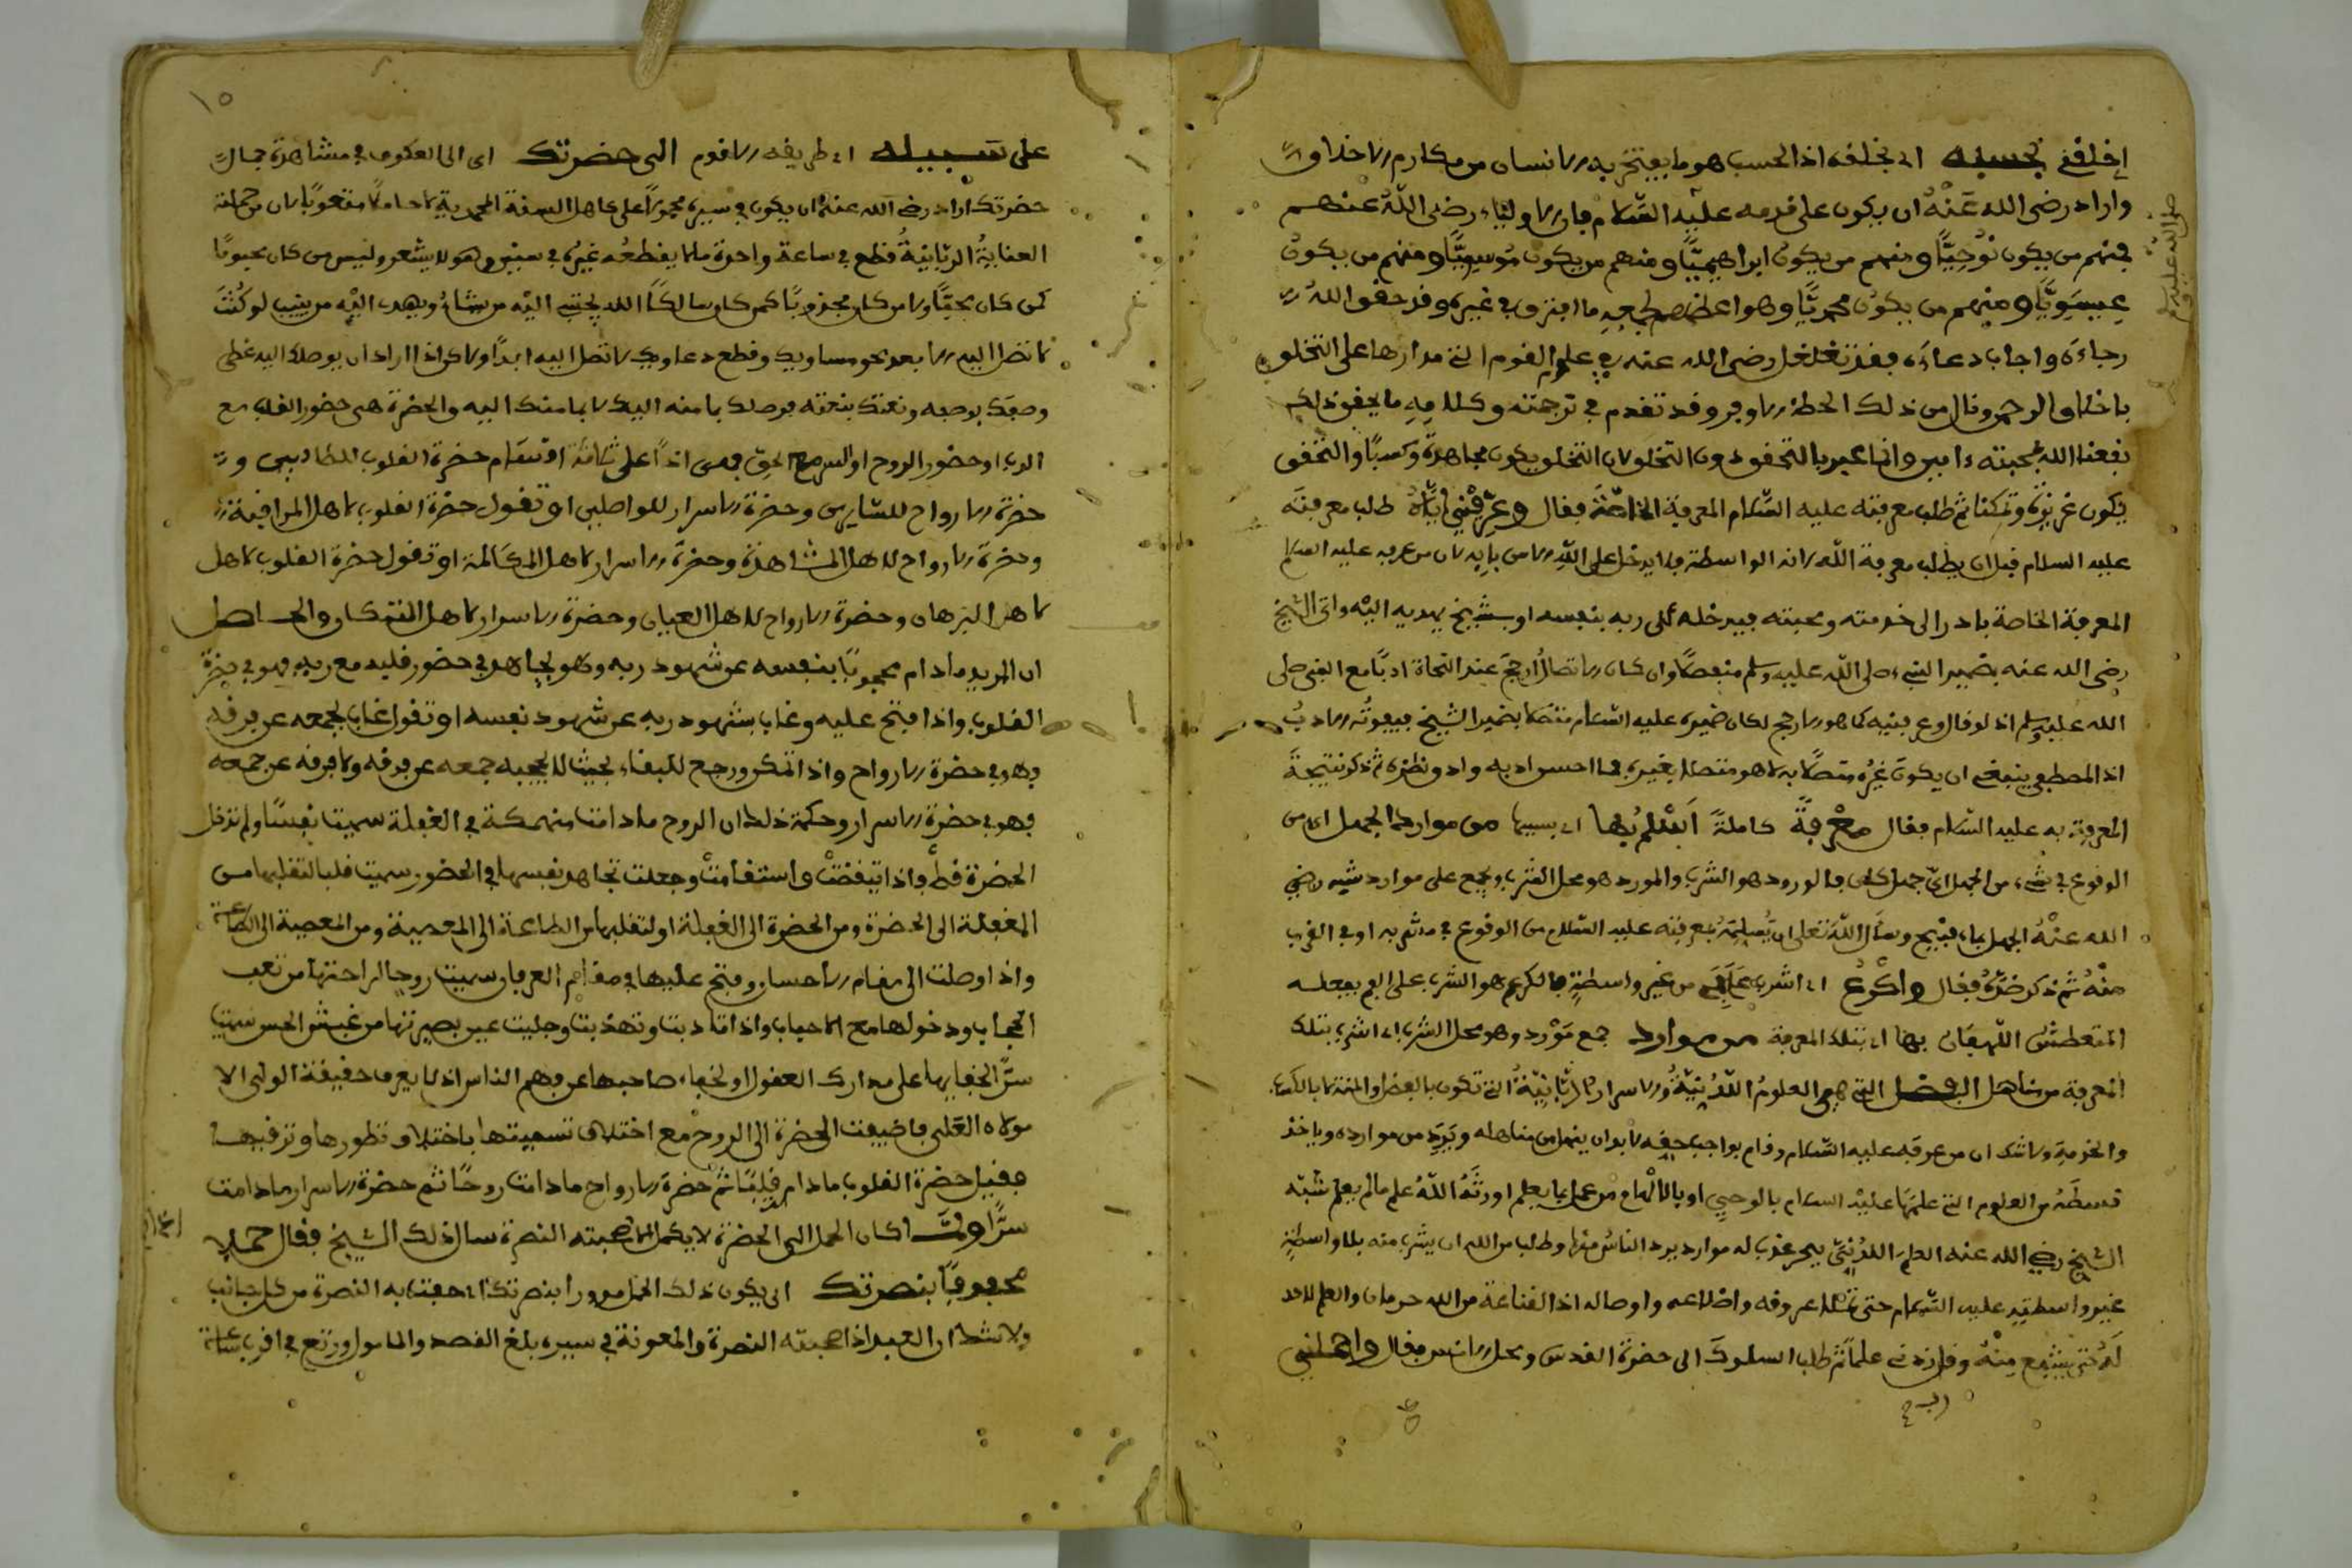 إخلقني بحسبه اي بخلقه اذ الحسب هو ما يفتخر به الانسان من مكارم الاخلاق
واراد رضى الله عنه ان يكون على قدمه عليه السلام فان الاولياء رضى الله عنهم
فمنهم من يكون نوحيًّا ومنهم من يكون ابراهيميًّا ومنهم من يكون موسويًّا ومنهم من يكون
عيسويًّا ومنهم من يكون محمديًّا وهو اعظمهم لجمعه ما افترق في غيره وقد حقق الله
رجاءه واجاب دعاءه فقد تغلغل رضى الله عنه في علوم القوم التي مدارها على التخلق
باخلاق الرحمن ونال من ذلك الحظ الاوفر وقد تقدم في ترجمته وكلامه ما يحقق ذلك
نفعنا الله بمحبته ءامين وانما عبر بالتحقق دون التخلق لان التخلق يكون مجاهدة وكسبًا والتحقق
يكون غريزة وتمكنا ثم طلب معرفته عليه السلام المعرفة الخاصة فقال وعرّفني إيّاه طلب معرفته
عليه السلام قبل ان يطلب معرفة الله لانه الواسطة فلا يدخل على الله الا من بابه لان من عرفه عليه السلام
المعرفة الخاصة بادر الى خدمته ومحبته فيدخله على ربه بنفسه او بشيخ يهديه اليه واتى الشيخ
رضى الله عنه بضمير النبيء صلى الله عليه وسلم منفصلًا وان كان الاتصال ارجح عند النحاة ادبًا مع النبي صلى
الله عليه وسلم اذ لو قال وعرفنيه كما هو الارجح لكان ضميره عليه السلام متصلا بضمير الشيخ فيفوته الادب
اذ المصطفى ينبغي ان يكون غيره متصلًا به لا هو متصلا بغيره فما احسن ادبه وادق نظره ثم ذكر نتيجة
المعرفة به عليه السلام فقال معرفة كاملةً أسلم بها اي بسببها من موارد الجهل اي من
الوقوع في شيء من الجهل اي جهل كان فالورود هو الشرب والمورد هو محل الشرب ويجمع على موارد
الله عنه الجهل بماء قبيح وسأل الله تعلى ان يسلمه بمعرفته عليه السلام من الوقوع في مشربه او في القرب
منه ثم ذكر ضدّه فقال وأكرع اي اشرب من غير واسطة فالكرع هو الشرب على الفم يفعله
المتعطش اللهفان بها اي بتلك المعرفة من موارد جمع مَوْرد وهو محل الشرب اي اشرب بتلك
المعرفة من مناهل الفضل التي هي العلوم اللّدُنّيّةُ والاسرار الربّانيّةُ التي تكون بالفضل والمنة لا بالكسب
والخدمة ولا شك ان من عرفه عليه السلام وقام بواجب حقه لابد ان ينهل من مناهله ويَرِد من موارده وياخذ
قسطَهُ من العلوم التي علمها عليه السلام بالوحيِ او بالالهام من عمل بما يعلم اورثَهُ اللهُ علم ما لم يعلم شبّه
الشيخ رضي الله عنه العلمَ اللدُنيّ ببحر عذب له موارد يرد الناس منها وطلب من الله ان يشرب منه بلا واسطةٍ
غير واسطتِهِ عليه السلام حتى تمتلئ عروقه واضلاعه واوصاله اذ القناعة من الله حرمان والعلم لا حد
لَهُ حتى يشبع مِنْهُ وقل رب زدني علمًا ثم طلب السلوك الى حضرة القدس ومحل الانس فقال واحملني
صلى الله عليه وسلم
١٥
على سبيله اي طريقه الاقوم الى حضرتك اي الى العكوف في مشاهدة جمال
حضرتك اراد رضي الله عنه ان يكون في سيره محمولًا على كاهل السنة المحمدية لا حاملًا متعوبًا لان من حملته
العنايةُ الربّانيةُ قطع في ساعة واحدة ما لا يقطعه غيرُه في سنين وهو لا يشعر وليس من كان محبوبًا
كمن كان محبًّا ولا من كان مجذوبًا كمن كان سالكًا الله يجتبي اليه من يشاءُ ويهدي اليه من ينيب لو كُنْتَ
لا تصل اليه الا بعد محو مساويك وقطع دعاويك لا تصل اليه ابدًا ولاكن اذا اراد ان يوصلك اليه غطى
وصفك بوصفه ونعتك بنعته فوصلك بما منه اليك لا بما منك اليه والحضرة هي حضور القلب مع
الرب او حضور الروح او السر مع الحق فهي اذًا على ثلاثة اقسام حضرة القلوب للطالبين و
حضرة الارواح للسّايرين وحضرة الاسرار للواصلين او تقول حضرة القلوب لاهل المراقبة
وحضرة الارواح لاهل المشاهدة وحضرة الاسرار لاهل المكالمة او تقول حضرة القلوب لاهل
لاهل البرهان وحضرة الارواح لاهل العيان وحضرة الاسرار لاهل التمكان والحاصل
ان المريد ما دام محجوبًا بنفسه عن شهود ربه وهو يجاهد في حضور قلبه مع ربه فهو في حضرة
القلوب واذا فتح عليه وغاب بشهود ربه عن شهود نفسه او تقول غاب بجمعه عن فرقه
فهو في حضرة الارواح واذا تمكن ورجع للبقاء بحيث لا يحجبه جمعه عن فرقه ولا فرقه عن جمعه
فهو في حضرة الاسرار وحكمة ذلك ان الروح ما دامت منهمكة في الغفلة سميت نفسًا ولم تدخل
الحضرة قط فاذا تيقظتْ واستقامتْ وجعلت تجاهد نفسها في الحضور سميت قلبا لتقلبها من
الغفلة الى الحضرة ومن الحضرة الى الغفلة او لتقلبها من الطاعة الى المعصية ومن المعصية الى الطاعة
واذا وصلت الى مقام الاحسان وفتح عليها في مقام العرفان سميت روحا لراحتها من تعب
الحجاب ودخولها مع الاحباب واذا تادبت وتهذبت وجليت عين بصيرتها من غبش الحس سميت
سرًّا لخفايها على مدارك العقول او لخفاء صاحبها عن وهم الناس اذ لا يعرف حقيقة الولي الا
مولاه العَلي فاضيفت الحضرة الى الروح مع اختلاف تسميتها باختلاف تطورها وترقيها
فقيل حضرة القلوب ما دام قلبًا ثم حضرة الارواح ما دامت روحًا ثم حضرة الاسرار ما دامت
سرًّا ولمّا كان الحمل الى الحضرة لا يكمل الا بصحبته النصرة سال ذلك الشيخ فقال حملا
محفوفًا بنصرتك اي يكون ذلك الحمل بنصرتك اي حفت به النصرة من كل جانب
ولا شك ان العبد اذا صحبته النصرة والمعونة في سيره بلغ القصد والمامول ورتع في اقرب ساعة